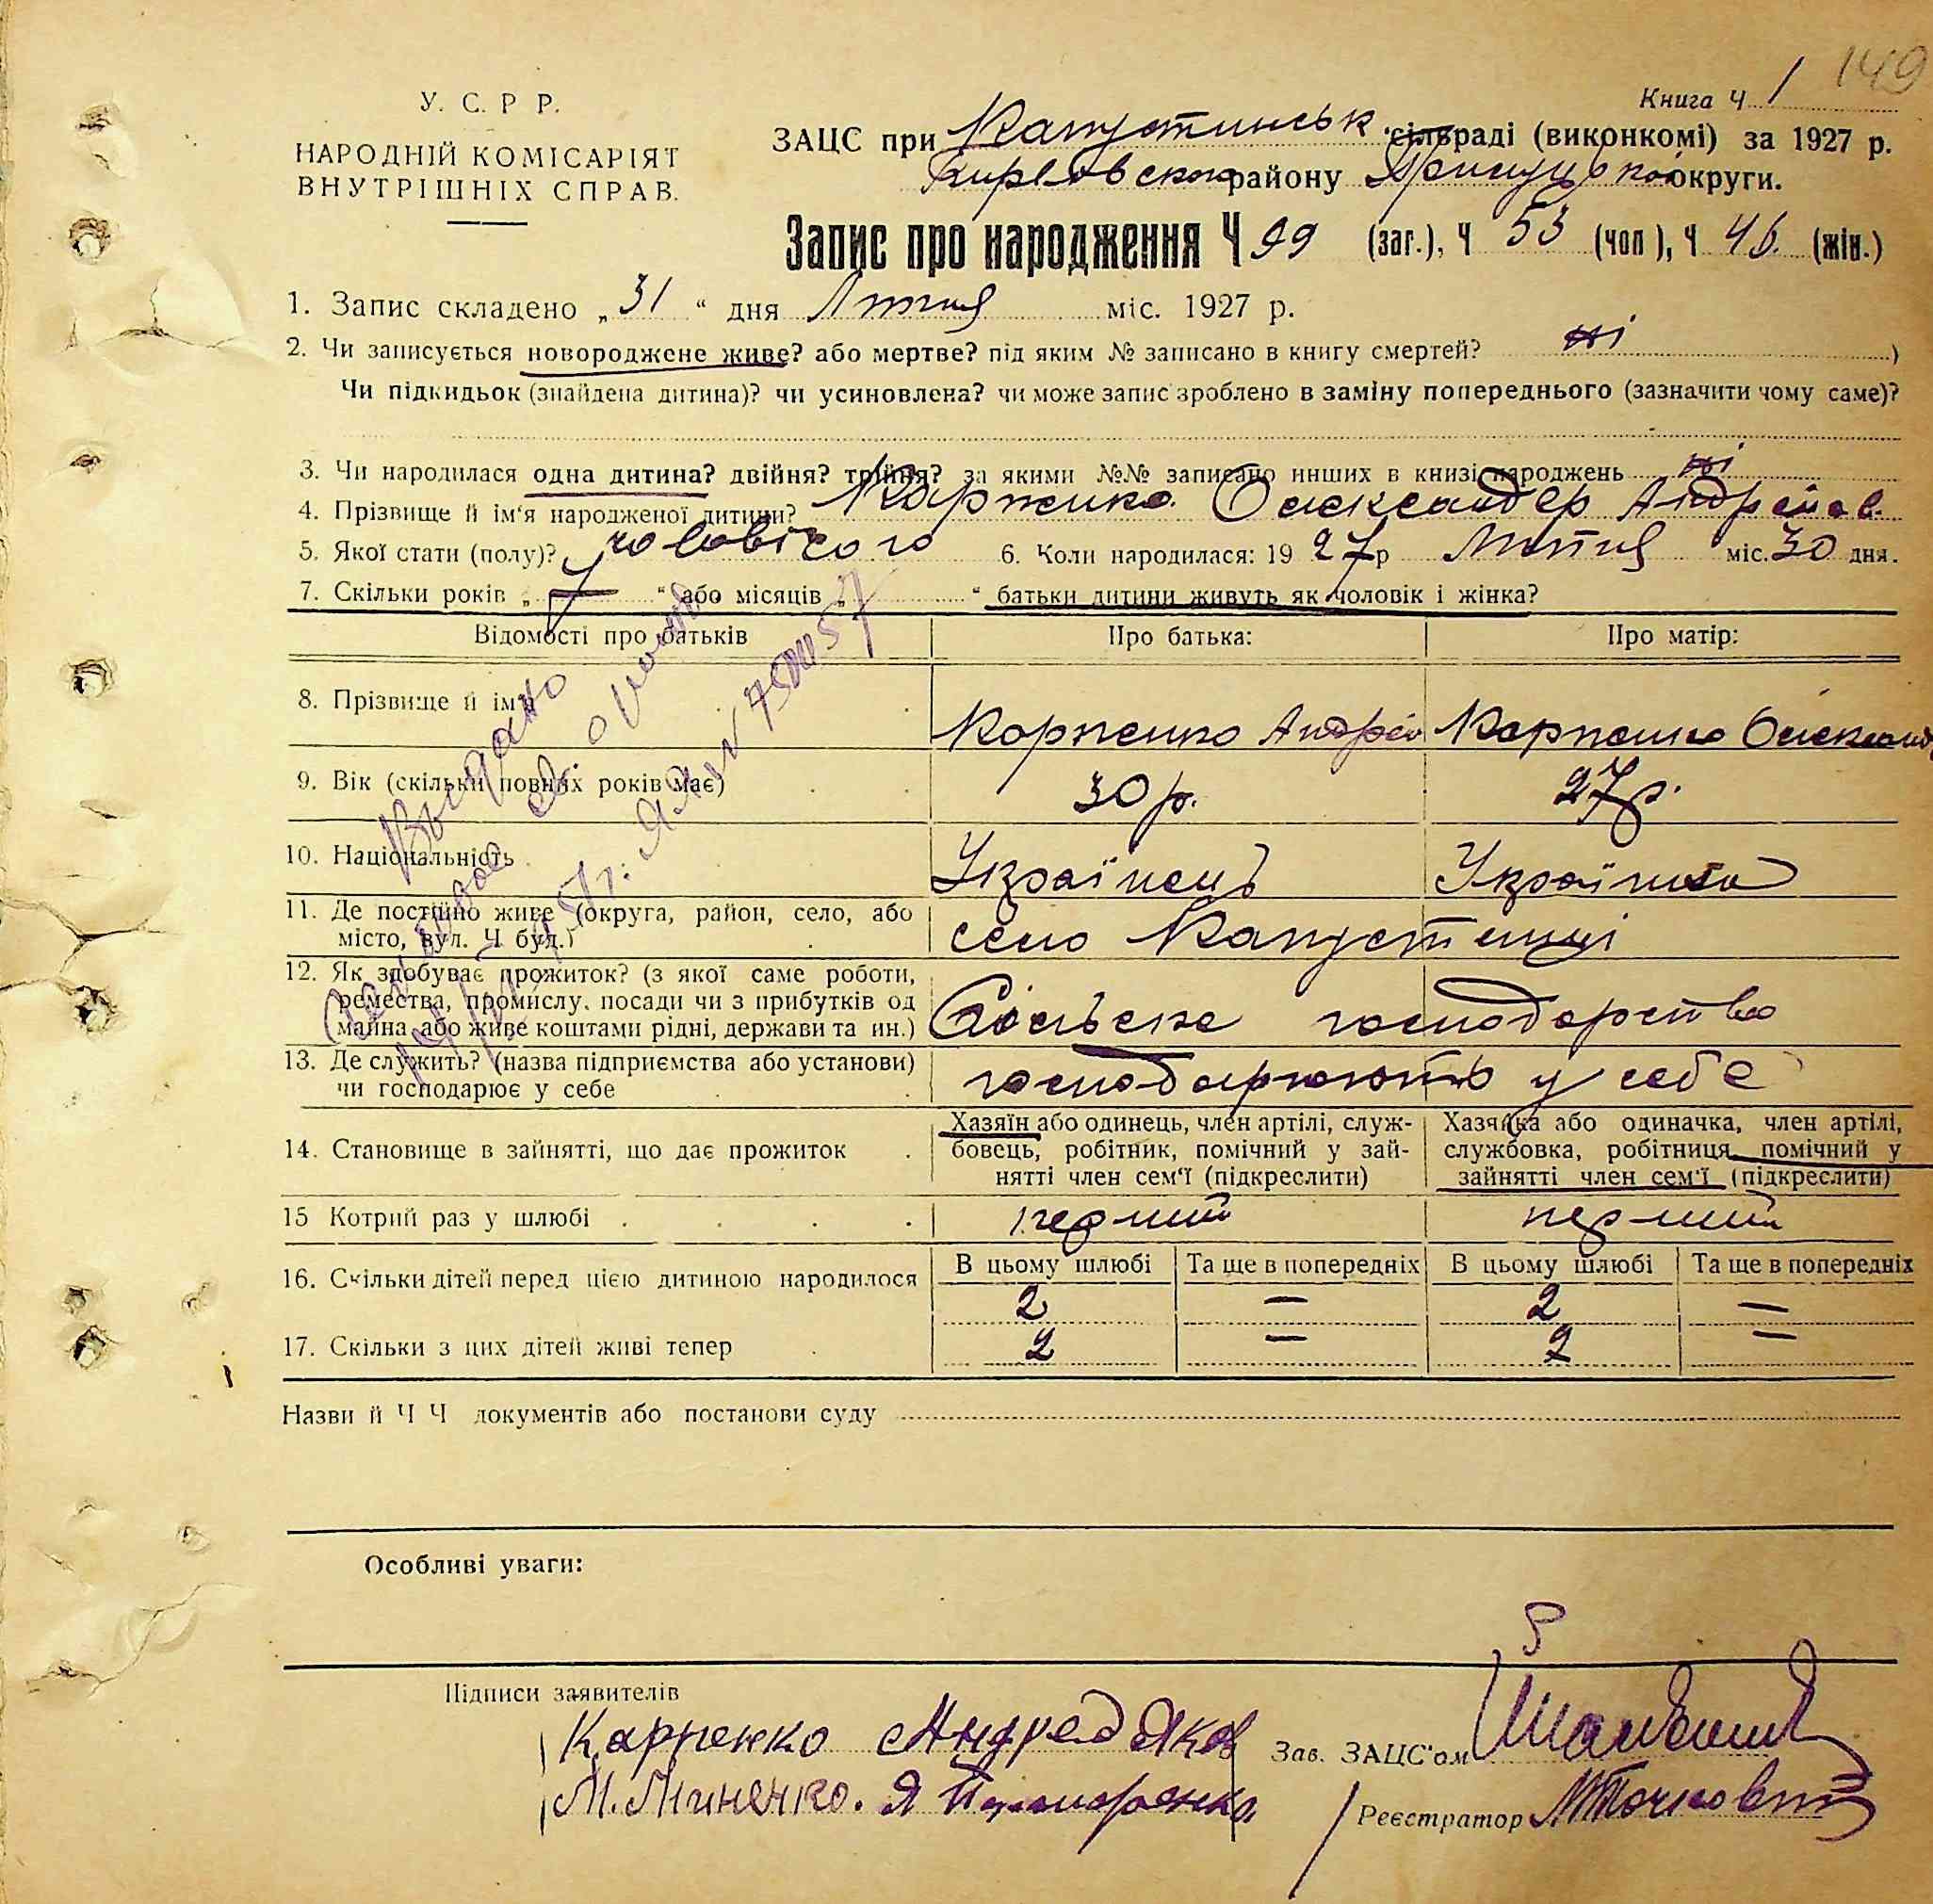 149
Книга Ч 1
У. С. Р. Р.
НАРОДНІЙ КОМІСАРІЯТ
ВНУТРІШНІХ СПРАВ.
ЗАЦС при Капустинськ. сільраді (виконкомі) за 1927 р.
району округи.
Запис про народження Ч 99 (заг.), Ч 53 (чол), Ч 46. (жін.)
1. Запис складено „31“ дня Липня міс. 1927 р.
2. Чи записується новороджене живе? або мертве? під яким № записано в книгу смертей? ні )
Чи підкидьок (знайдена дитина)? чи усиновлена? чи може запис зроблено в заміну попереднього (зазначити чому саме)?
3. Чи народилася одна дитина? двійня? трійня? за якими №№ записано инших в книзі народжень ні
4. Прізвище й ім'я народженої дитини? Карпенко Олександер Андрейов.
5. Якої стати (полу)? чоловічого 6. Коли народилася: 1927р Липня міс. 30 дня.
7. Скільки років „7“ або місяців „ “ батьки дитини живуть як чоловік і жінка?
Відомості про батьків Про батька: Про матір:
8. Прізвище й ім'я Карпенко Андрей Карпенко Олександ
9. Вік (скільки повних років має) 30 р. 27 р.
10. Національність Українець Українка
11. Де постійно живе (округа, район, село, або
місто, вул. Ч буд.) село Капустинці
12. Як здобуває прожиток? (з якої саме роботи,
ремества, промислу, посади чи з прибутків од
майна або живе коштами рідні, держави та ин.) Сільске господарство
13. Де служить? (назва підприємства або установи)
чи господарює у себе господарюють у себе
14. Становище в зайнятті, що дає прожиток
Хазяїн або одинець, член артілі, служ-
бовець, робітник, помічний у зай-
нятті член сем'ї (підкреслити)
Хазяйка або одиначка, член артілі,
службовка, робітниця, помічний у
зайнятті член сем'ї (підкреслити)
15 Котрий раз у шлюбі перший перший
В цьому шлюбі Та ще в попередніх В цьому шлюбі Та ще в попередніх
16. Скільки дітей перед цією дитиною народилося 2 — 2 —
17. Скільки з цих дітей живі тепер 2 — 2 —
Назви й Ч Ч документів або постанови суду
Выдано
Особливі уваги:
Підписи заявителів
Карпенко Андрей Яков
М. Миненко. Я Пономаренко
Зав. ЗАЦС'ом
Реєстратор